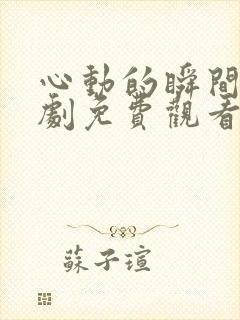 心動的瞬間
劇免費觀看
蘇子瑄